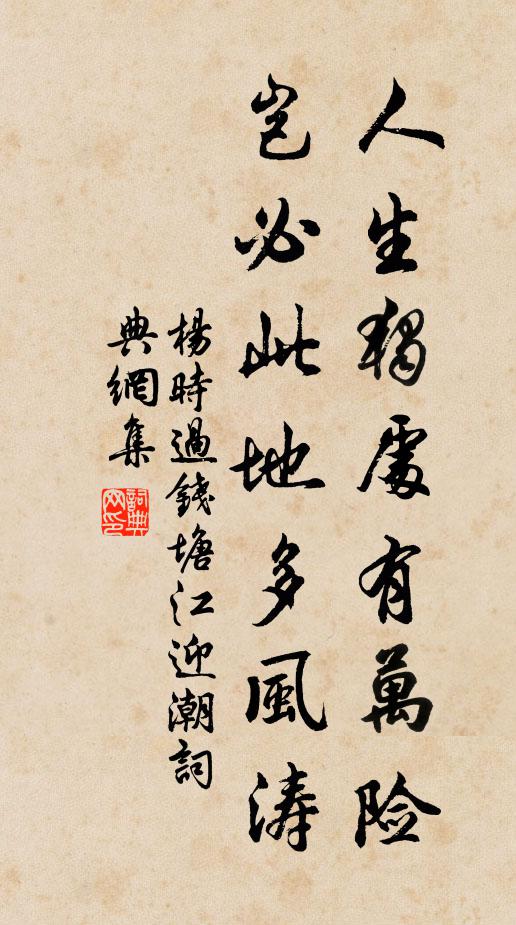 人生觸處有萬险
豈必此地多風濤
楊時過錢塘江迎潮詞
典網集
詞典
网印